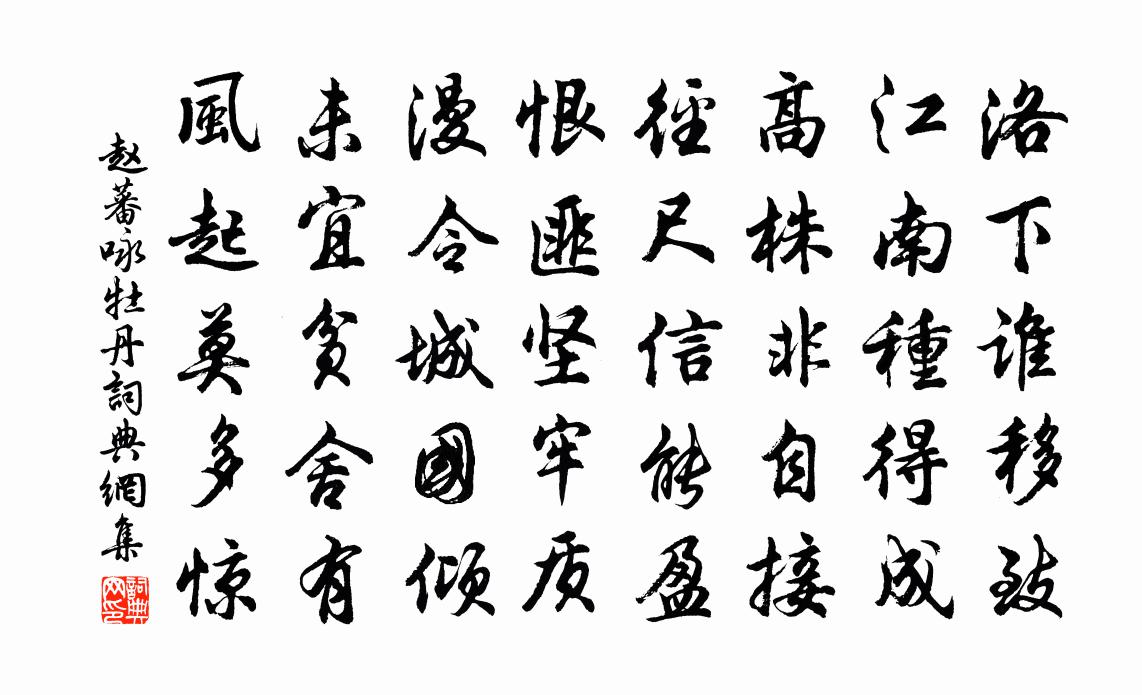 洛下谁移致
江南種得成
高株非自接
徑尺信能盈
恨匪坚牢质
漫令城國倾
未宜贫舍有
風起莫多惊
赵蕃咏牡丹詞典網集
詞典网印